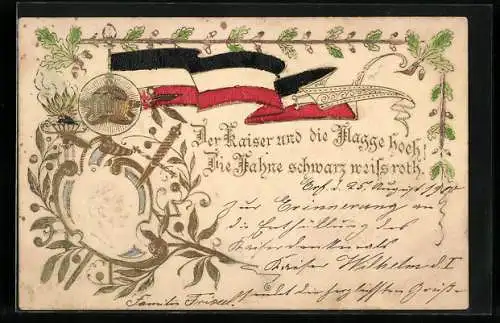 Der Kaiser und die Flagge hoch!
Die Fahne schwarz weiss roth.
Erf. d. 25. August 1900
Zur Erinnerung an
die Enthüllung des
Kaiserdenkmals
Kaiser Wilhelm d. I
sendet die herzlichsten Grüße
Familie